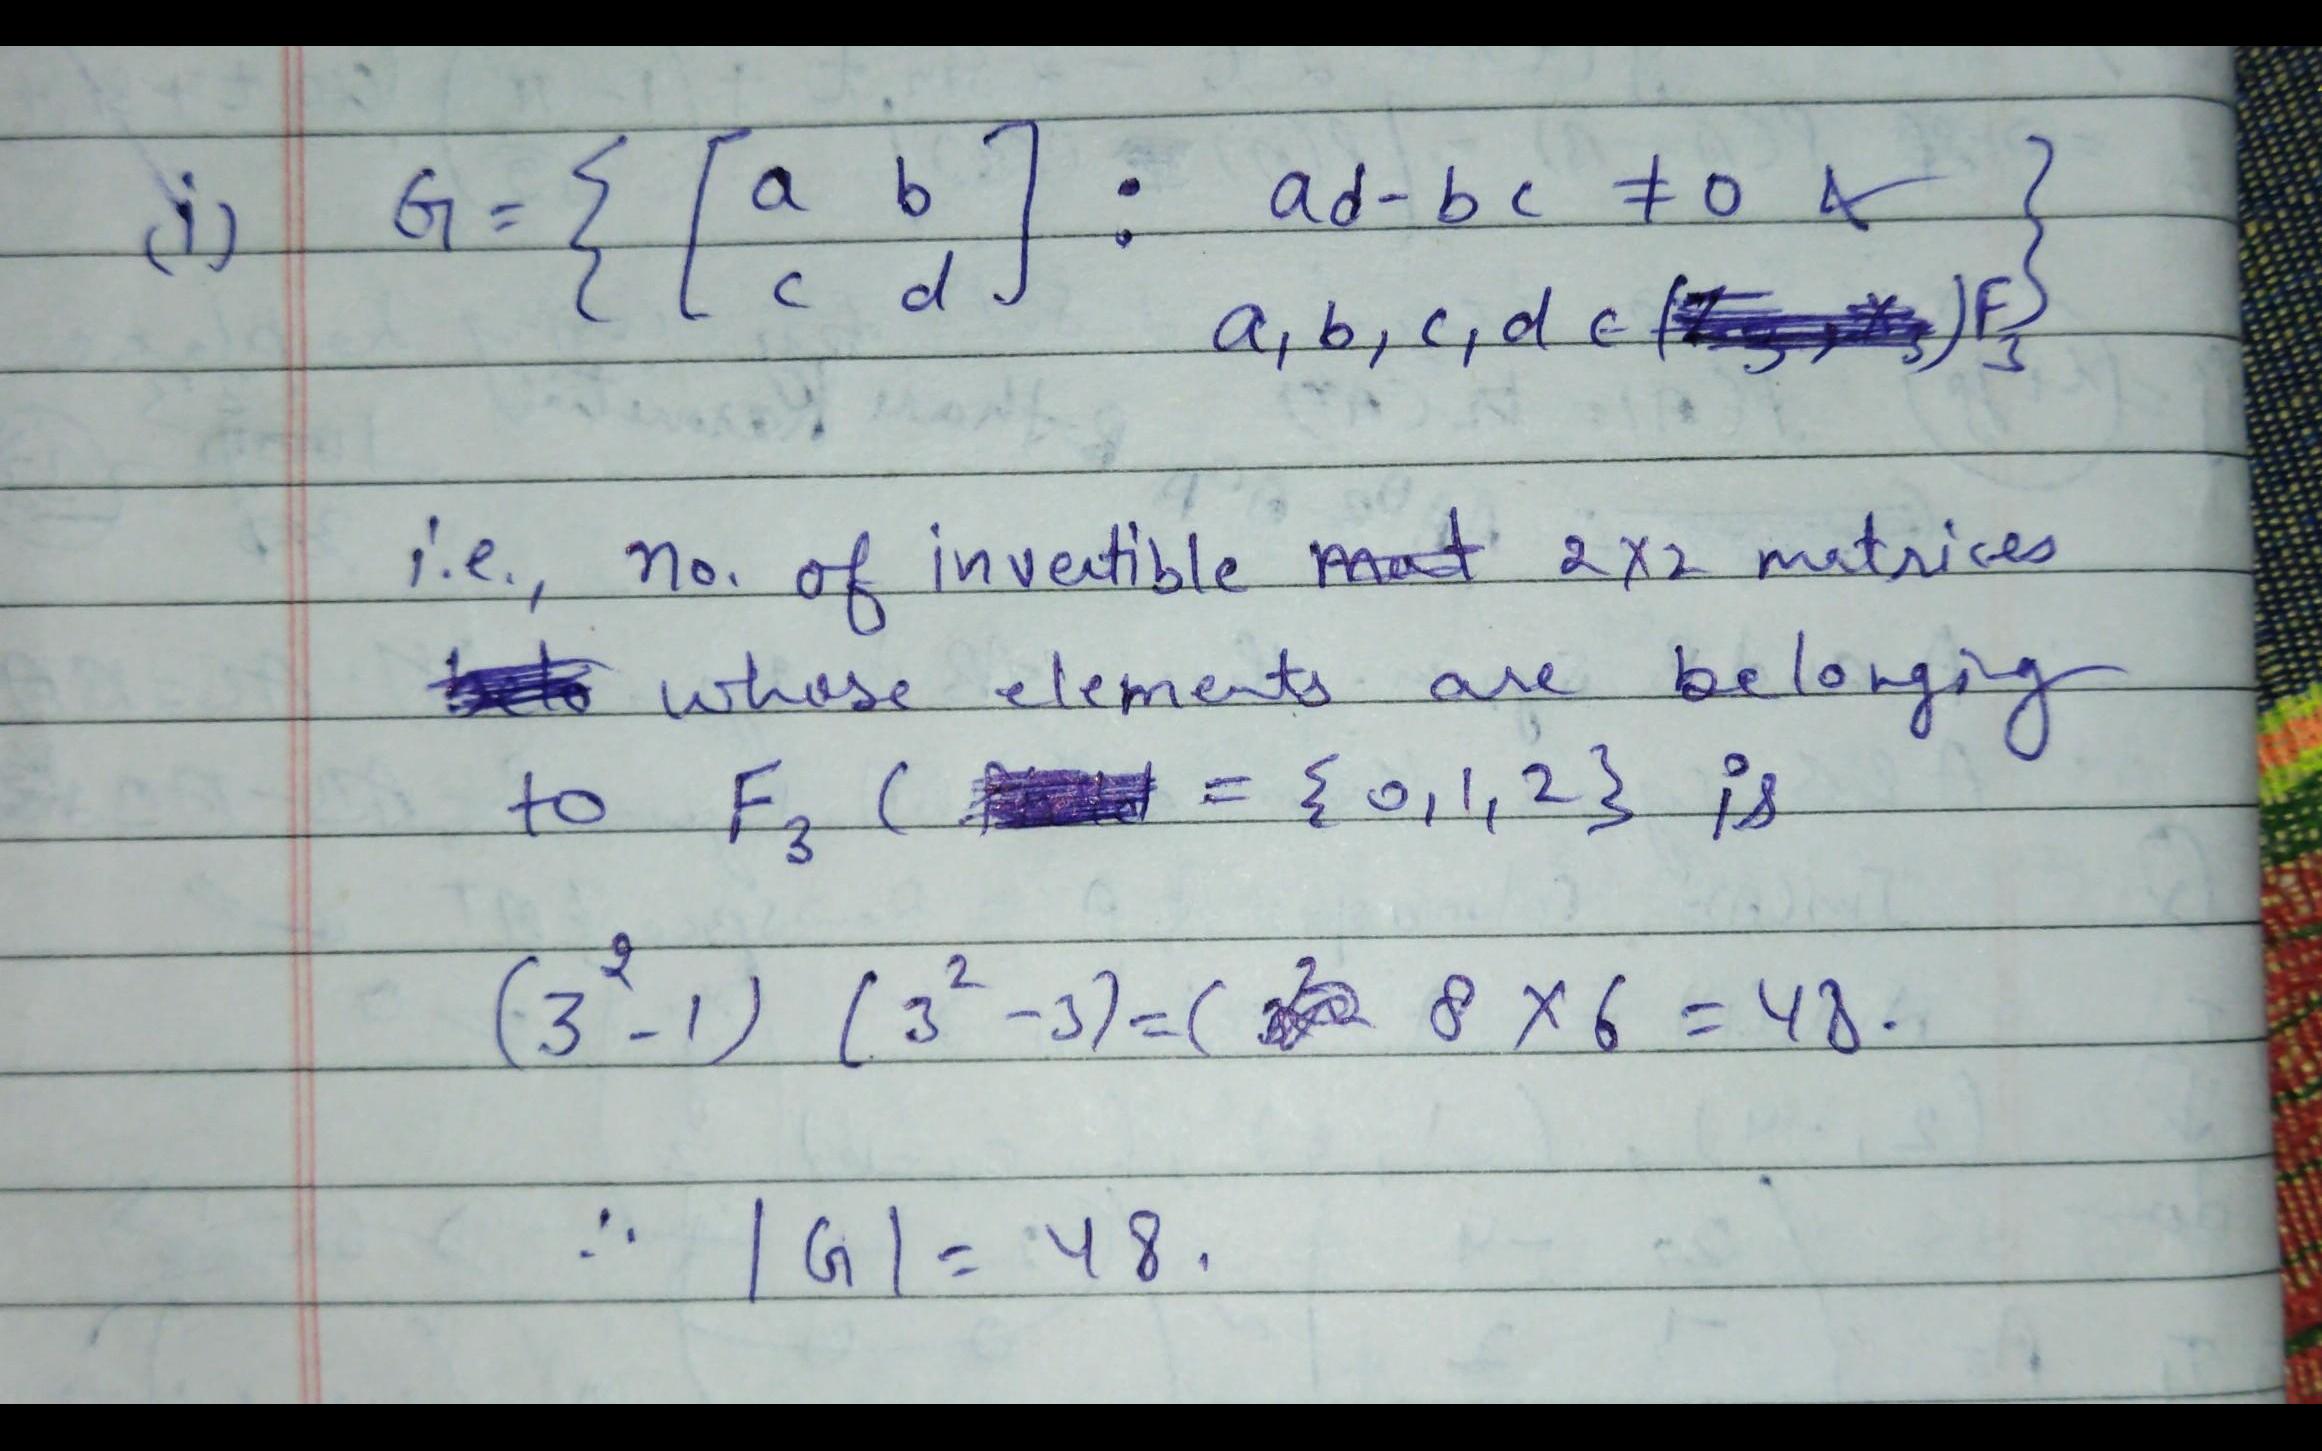 (i) G = { [ a b : ad - bc ≠ 0 & }
c d ] a, b, c, d ∈ ( ) F₃
i.e., no. of invertible mat 2x2 matrices
whose elements are belonging
to F₃ ( = {0,1,2} is
(3² - 1) (3² - 3) = ( 8 × 6 = 48.
∴ |G| = 48.